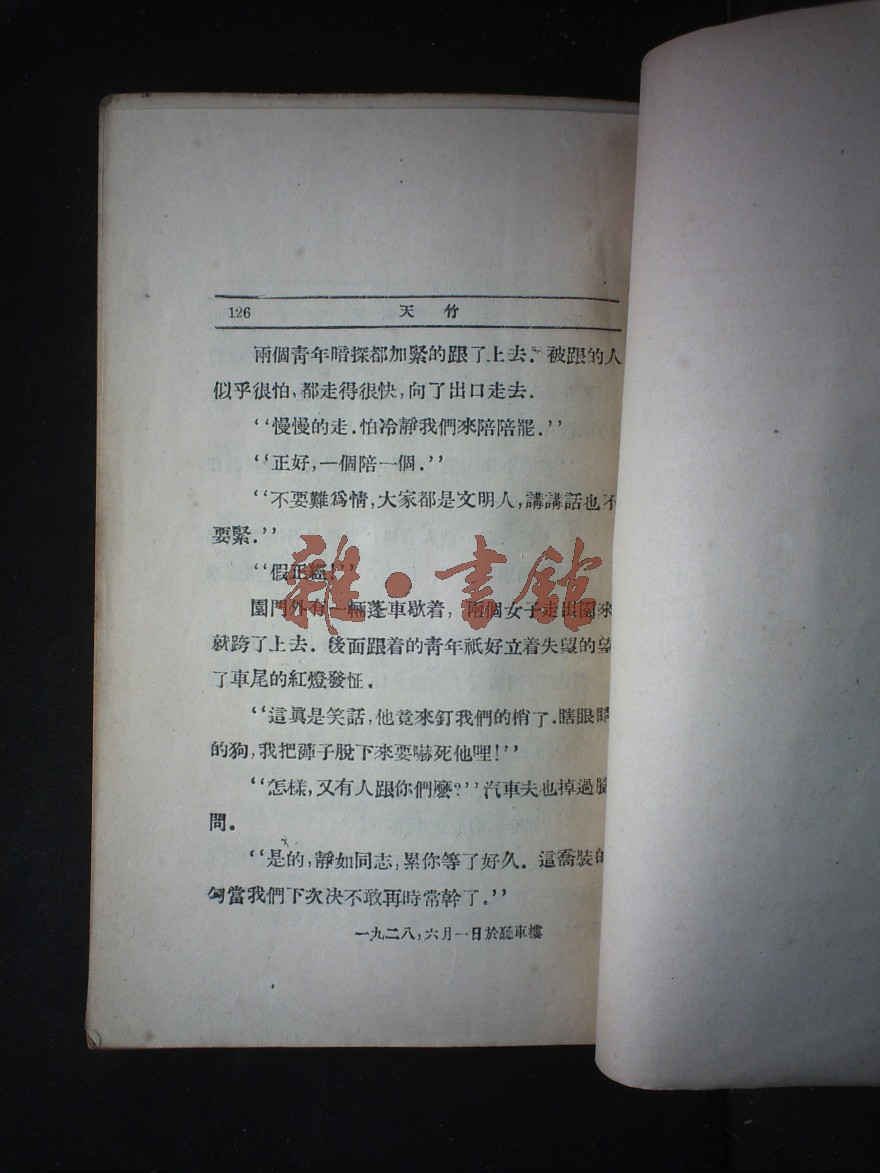 126 天竹
兩個青年暗探都加緊的跟了上去．被跟的人
似乎很怕，都走得很快，向了出口走去．
‘‘慢慢的走．怕冷靜我們來陪陪罷．’’
‘‘正好，一個陪一個．’’
‘‘不要難爲情，大家都是文明人，講講話也不
要緊．’’
‘‘假正經！’’
雜·書館
園門外有一輛蓬車歇着，兩個女子走出園來
就跨了上去．後面跟着的青年祇好立着失望的望
了車尾的紅燈發怔．
‘‘這眞是笑話，他竟來釘我們的梢了．瞎眼睛
的狗，我把褲子脫下來要嚇死他哩！’’
‘‘怎樣，又有人跟你們麽？’’汽車夫也掉過臉
問。
‘‘是的，靜如同志，累你等了好久．這喬裝的
勾當我們下次決不敢再時常幹了．’’
一九二八，六月一日於聽車樓